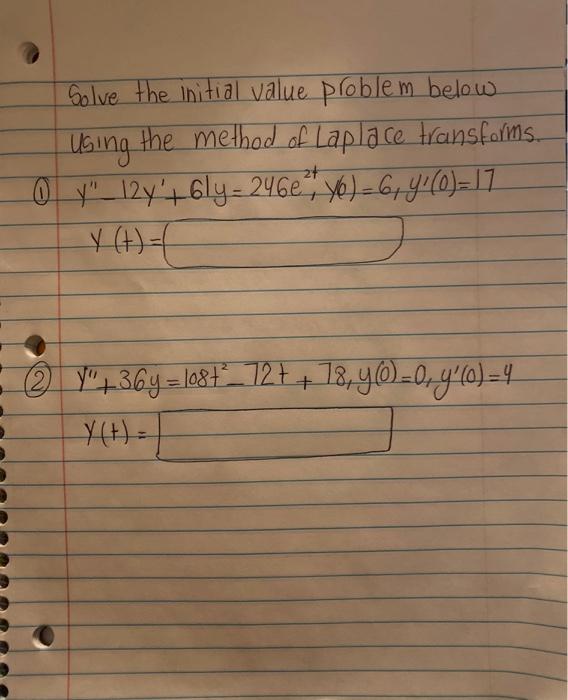 Solve the initial value problem below
using the method of Laplace transforms.
① y"-12y'+61y=246e²ᵗ, y(0)=6, y'(0)=17
Y(t)=
② y"+36y=108t²-72t+78, y(0)=0, y'(0)=4
Y(t)=